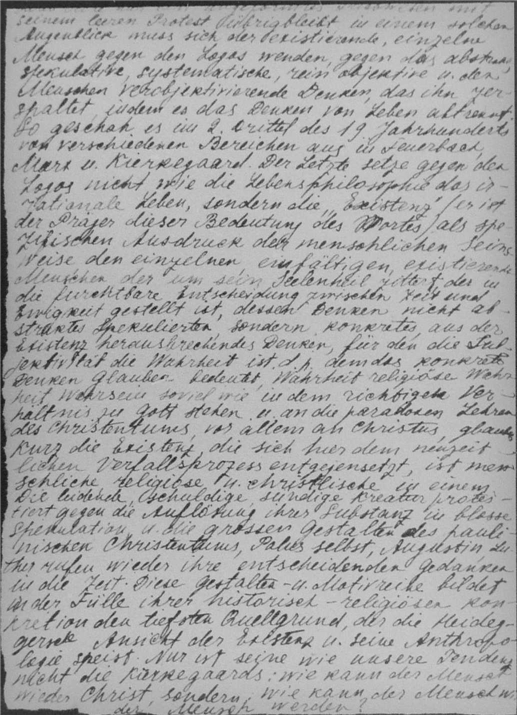 seinem leeren Protest übrigbleibt in einem solchen
Augenblick muss sich der existierende, einzelne
Mensch gegen den Logos wenden, gegen das abstrakte,
spekulative, systematische, rein objektive u. den
Menschen verobjektivierende Denken, das ihn zer-
spaltet, indem es das Denken von Leben abtrennt.
So geschah es im 2. Drittel des 19. Jahrhunderts
von verschiedenen Bereichen aus in Feuerbach,
Marx u. Kierkegaard. Der Letzte setze gegen den
Logos nicht wie die Lebensphilosophie das ir-
rationale Leben, sondern die "Existenz" (er ist
der Präger dieser Bedeutung des Wortes) als spe-
zifischen Ausdruck der menschlichen Seins-
weise den einzelnen einfältigen, existierende
Menschen der um sein Seelenheil zittert der in
die furchtbare Entscheidung zwischen Zeit und
Ewigkeit gestellt ist, dessen Denken nicht ab-
straktes Spekulierten sondern konkretes aus der
Existenz herausbrechendes Denken, für den die Sub-
jektivität die Wahrheit ist d.h. dem das konkrete
Denken Glauben bedeutet, Wahrheit religiöse Wahr-
heit Wahrsein soviel wie in dem richtigsten Ver-
hältnis zu Gott stehen u. an die paradoxen Lehren
des Christentums, vor allem an Christus, glauben
kurz die Existenz, die sich hier dem neuzeit-
lichen Verfallsprozess entgegensetzt, ist men-
schliche religiöse u. christlische in einem
Die leidende, schuldige sündige Kreatur protes-
tiert gegen die Auflösung ihrer Substanz in blosse
Spekulation u. die grossen Gestalten des pauli-
nischen Christentums, selbst, Augustin Lu-
ther rufen wieder ihre entscheidenden Gedanken
in die Zeit. Diese Gestalten- u. Motivreihe bildet
in der Fülle ihrer historisch-religiösen Kon-
kretion den tiefsten Quellgrund, der die Heideg-
gersche Ansicht der Existenz u. seine Anthropo-
logie speist. Nur ist seine wie unsere Tendenz
nicht die Kierkegaards: wie kann der Mensch
wieder Christ, sondern, wie kann der Mensch wi
der Mensch werden?